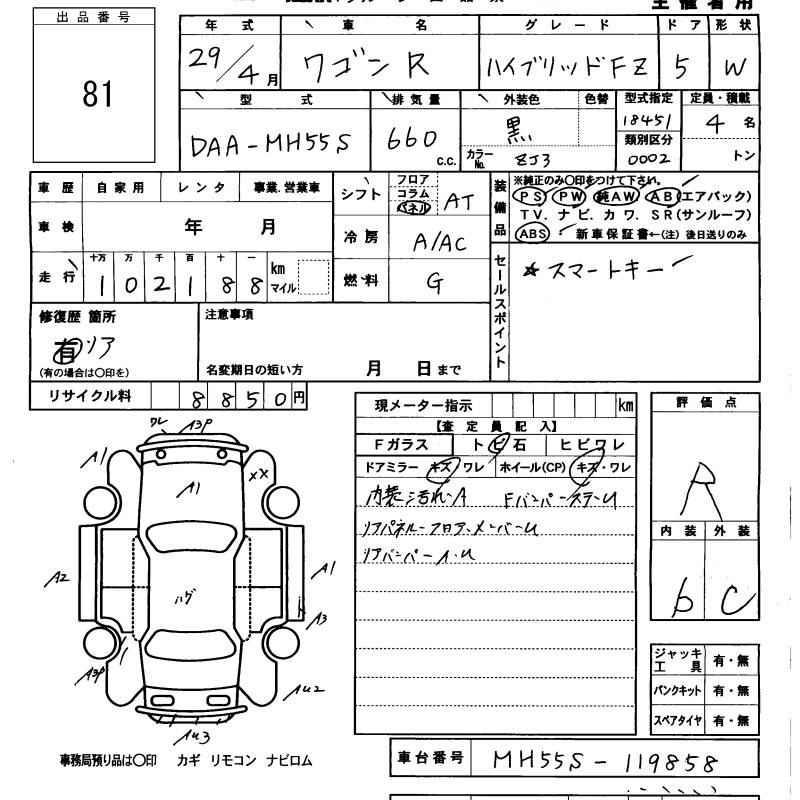 主催者用
出品番号
81
年式 車名 グレード ドア 形状
29/4月 ワゴンR ハイブリッドFZ 5 W
型式 排気量 外装色 色替 型式指定 定員・積載
DAA-MH55S 660 c.c. 黒 18451 4名
カラーNo. ZJ3 類別区分 0002 トン
車歴 自家用 レンタ 事業.営業車
車検 年 月
走行 十万 万 千 百 十 一
102188 km マイル
シフト フロア コラム パネル AT
冷房 A/AC
燃料 G
装備品
※純正のみ〇印をつけて下さい。
PS PW 純AW AB(エアバック)
TV. ナビ. カワ. SR(サンルーフ)
ABS 新車保証書←(注) 後日送りのみ
セールスポイント
☆スマートキー
修復歴 箇所
有 リア
(有の場合は〇印を)
注意事項
名変期日の短い方 月 日まで
リサイクル料 8850円
現メーター指示 km
【査定員記入】
Fガラス トビ石 ヒビワレ
ドアミラー キズ/ワレ ホイール(CP) キズ・ワレ
内装汚れA FバンパーステーU
リアパネル-フロア.メンバーU
評価点
R
内装 外装
b C
ワレ A3P
A1 A1 XX
A2 ハゲ A1
A3
A3P AU2
AU3
ジャッキ工具 有・無
パンクキット 有・無
スペアタイヤ 有・無
事務局預り品は〇印 カギ リモコン ナビロム
車台番号 MH55S-119858